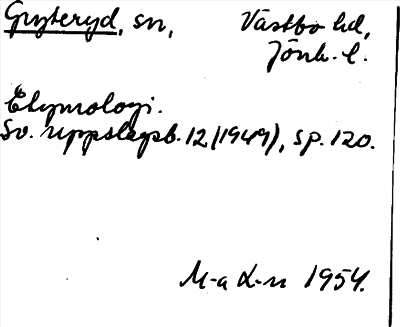 Gryteryd, sn, Västbo hd,
Jönk. l.
Etymologi.
Sv. uppslagsb. 12 (1949), sp. 120.
M-a L-n 1954.